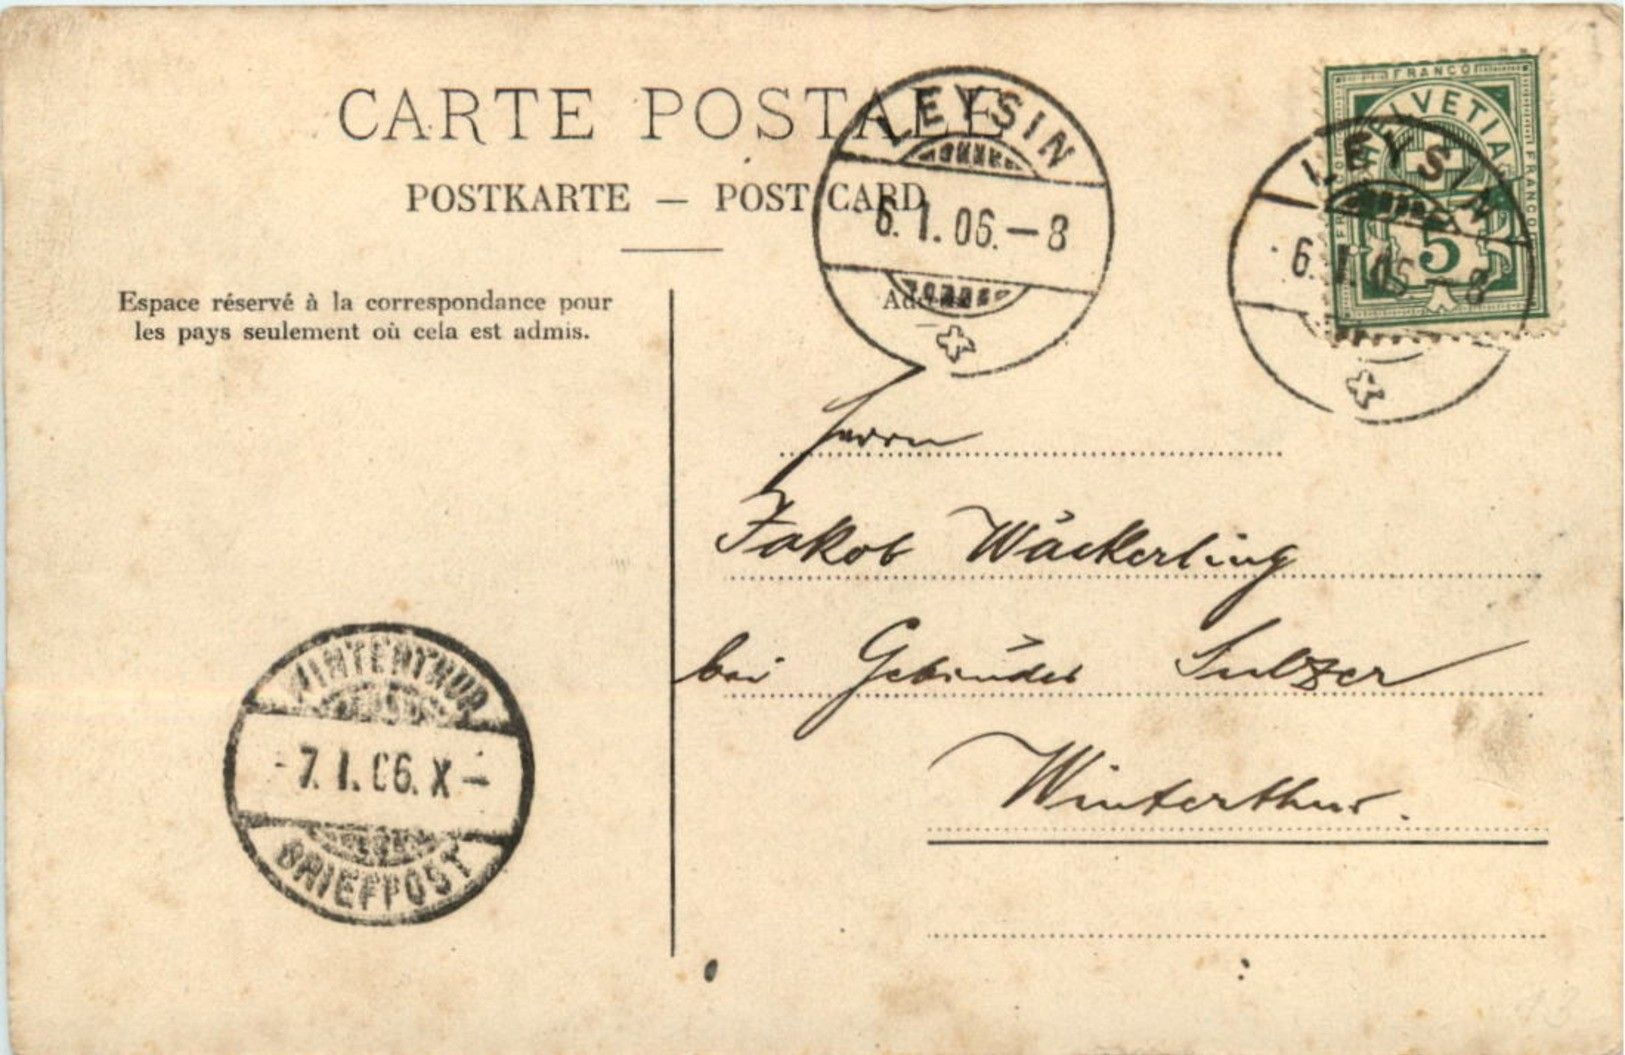 CARTE POSTALE
POSTKARTE — POST CARD
LEYSIN
6.1.06.–8
FRANCO
HELVETIA
FRANCO
5
LEYSIN
6.1.06–8
Espace réservé à la correspondance pour
les pays seulement où cela est admis.
Herrn
Jakob Wäckerling
bei Gebrüder Sulzer
Winterthur.
WINTERTHUR
-7.I.06.X-
BRIEFPOST